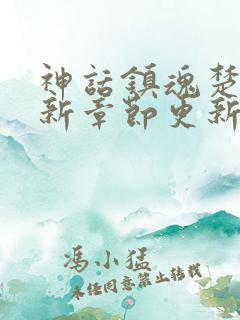 神話鎮魂楚
新章節更新
冯小猛
未经同意禁止转载